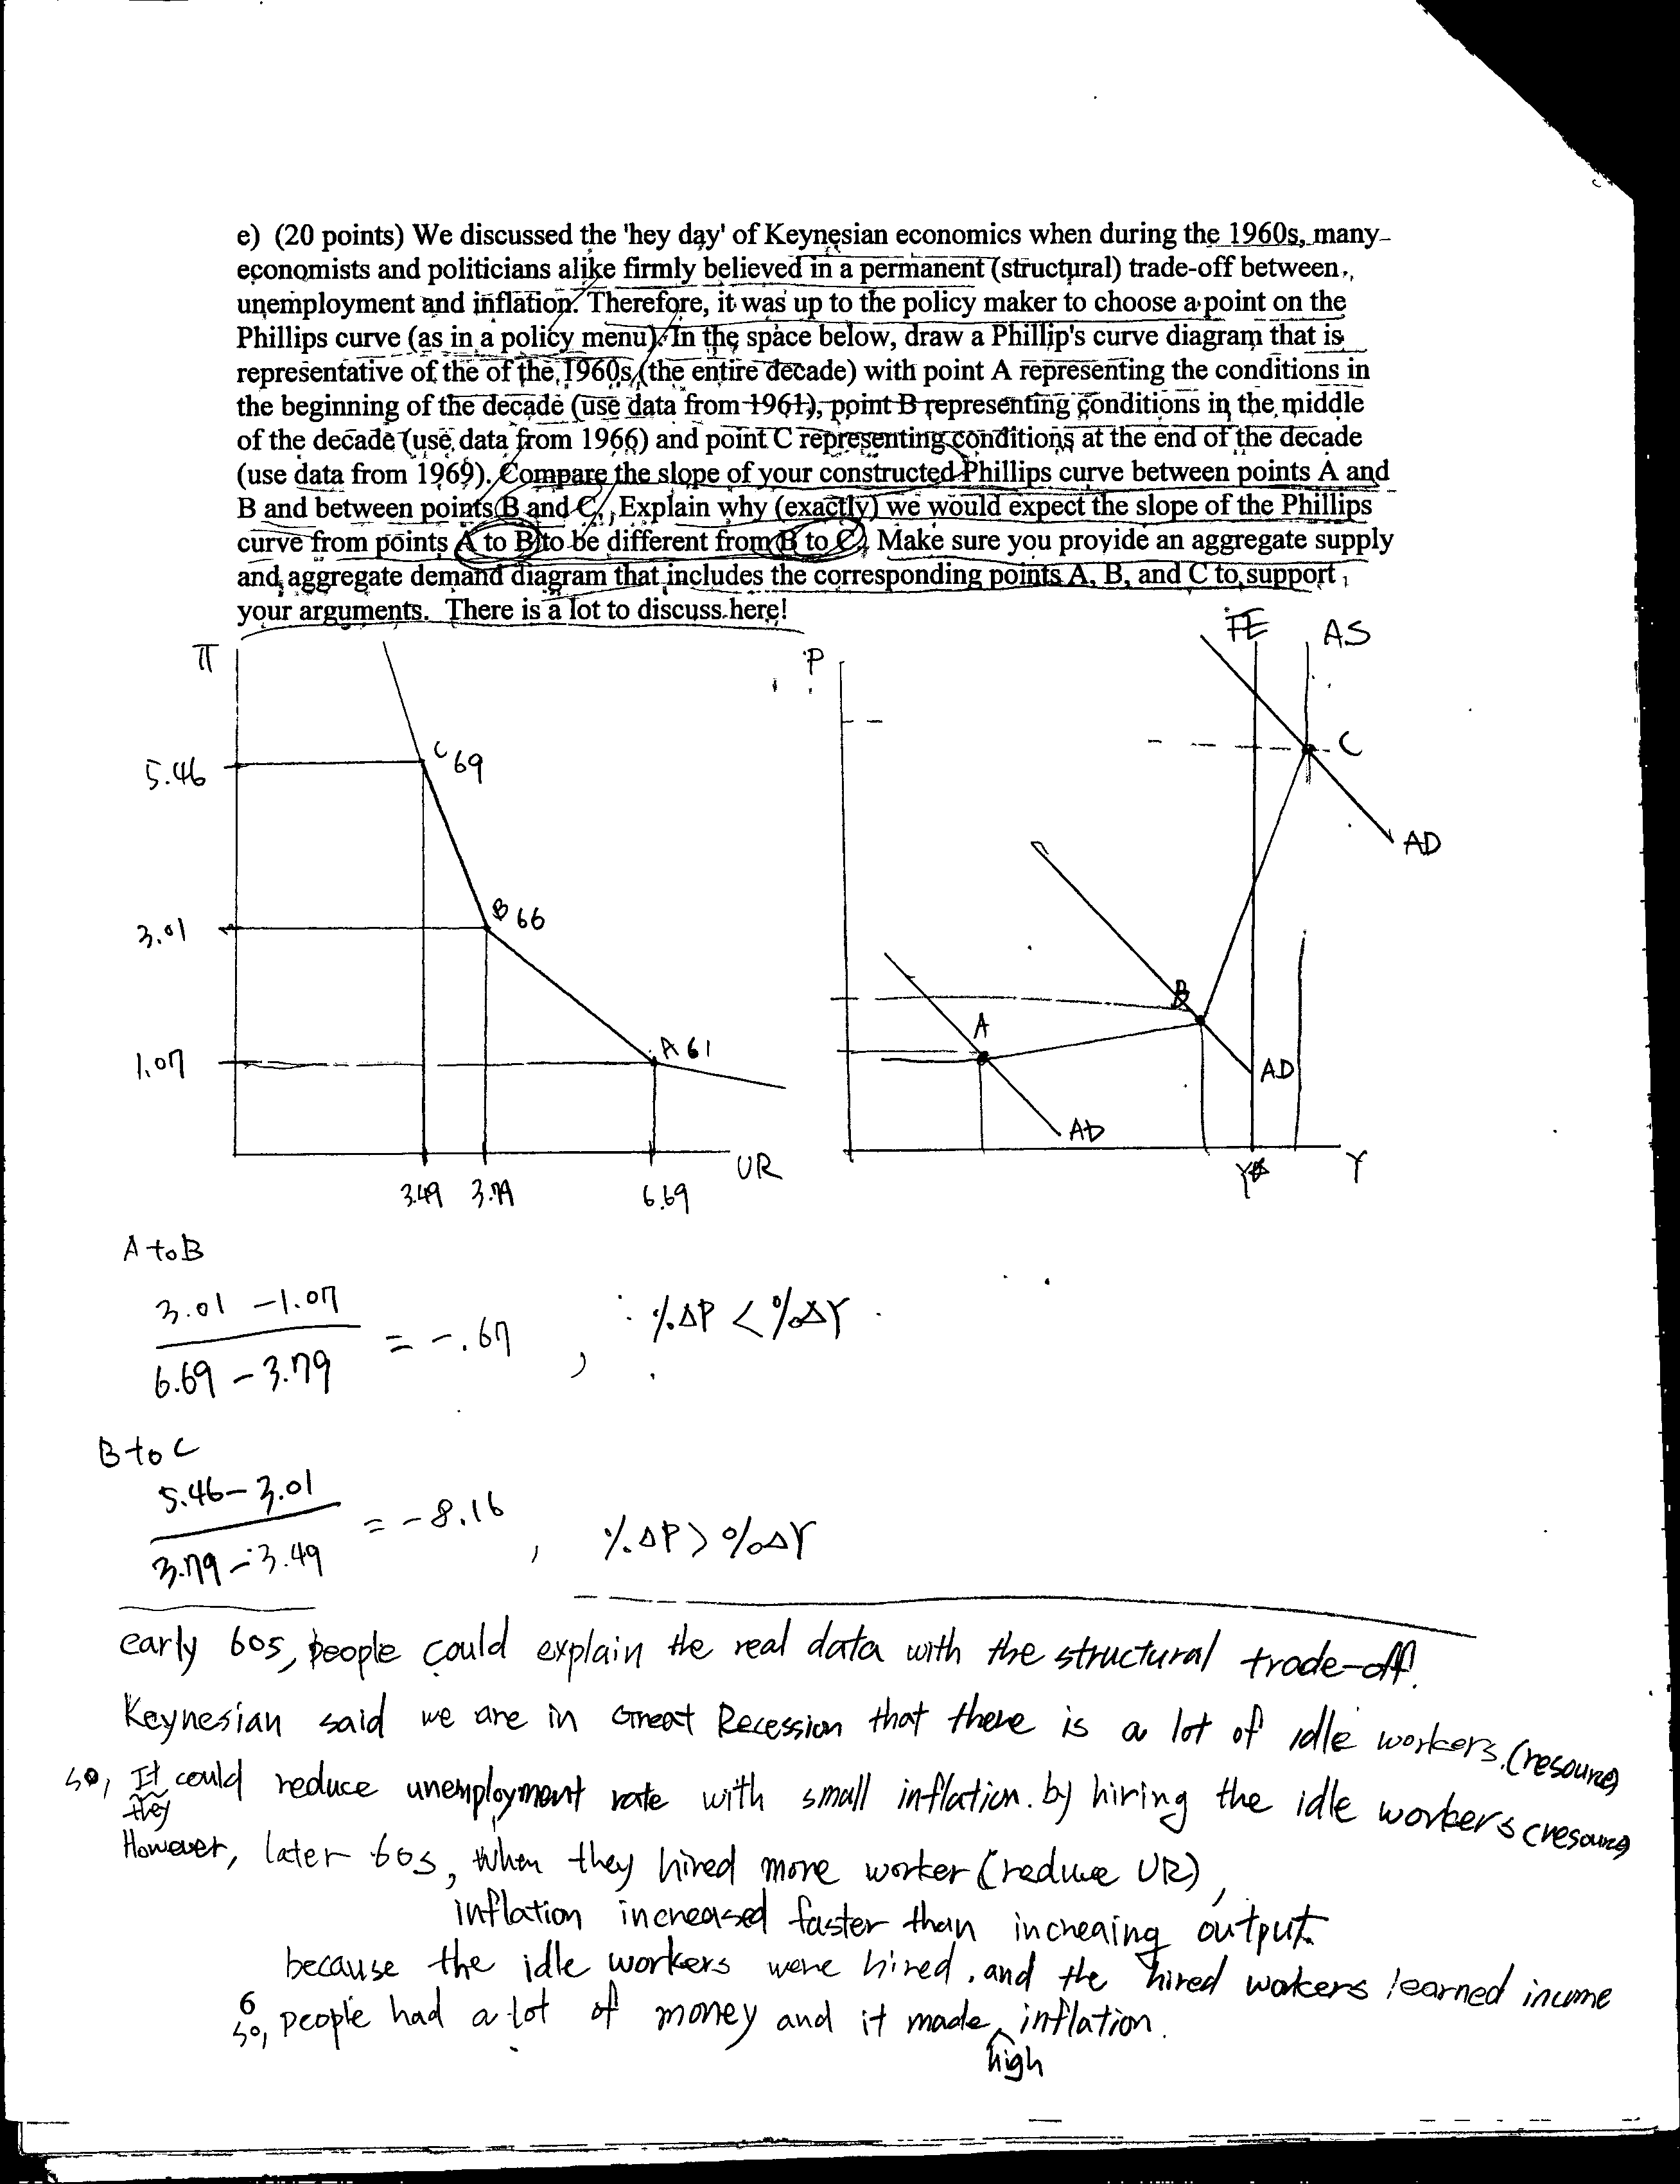 e) (20 points) We discussed the 'hey day' of Keynesian economics when during the 1960s, many
economists and politicians alike firmly believed in a permanent (structural) trade-off between
unemployment and inflation. Therefore, it was up to the policy maker to choose a point on the
Phillips curve (as in a policy menu). In the space below, draw a Phillip's curve diagram that is
representative of the of the 1960s (the entire decade) with point A representing the conditions in
the beginning of the decade (use data from 1961), point B representing conditions in the middle
of the decade (use data from 1966) and point C representing conditions at the end of the decade
(use data from 1969). Compare the slope of your constructed Phillips curve between points A and
B and between points B and C. Explain why (exactly) we would expect the slope of the Phillips
curve from points A to B to be different from B to C. Make sure you provide an aggregate supply
and aggregate demand diagram that includes the corresponding points A, B, and C to support
your arguments. There is a lot to discuss here!
π P FE AS
5.46 C 69 C
AD
3.01 B 66 B
1.07 A 61 A AD
AD
UR Y* Y
3.49 3.79 6.69
A to B
3.01 - 1.07
6.69 - 3.79
= -.67 , %ΔP < %ΔY
B to C
5.46 - 3.01
3.79 - 3.49
= -8.16 , %ΔP > %ΔY
early 60s, people could explain the real data with the structural trade-off.
Keynesian said we are in Great Recession that there is a lot of idle workers. (resource)
so, It could reduce unemployment rate with small inflation. by hiring the idle workers (resource)
they
However, later 60s, when they hired more worker (reduce UR),
inflation increased faster than increaing output.
because the idle workers were hired. and the hired wokers learned income
6
so, people had a lot of money and it made high inflation.